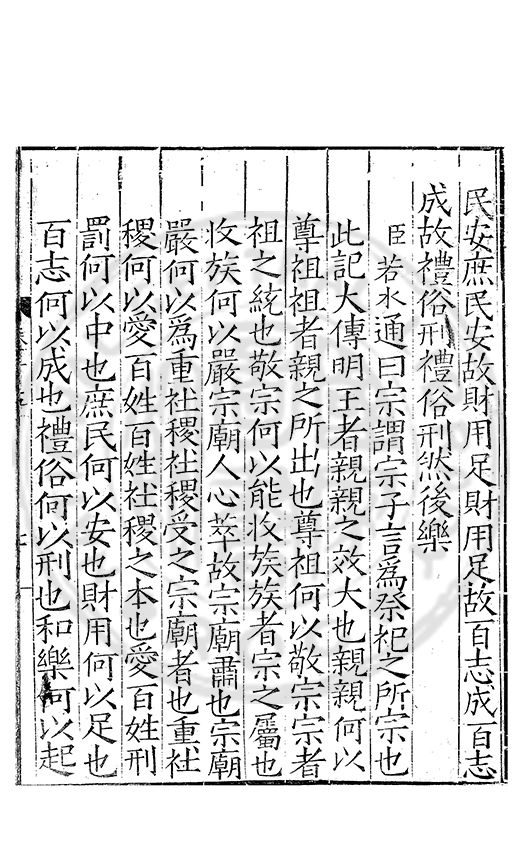 民安庶民安故財用足財用足故百志成百志
成故禮俗刑禮俗刑然後樂
臣若水通曰宗謂宗子言爲祭祀之所宗也
此記大傳明王者親親之效大也親親何以
尊祖祖者親之所出也尊祖何以敬宗宗者
祖之統也敬宗何以能收族族者宗之屬也
收族何以嚴宗廟人心萃故宗廟肅也宗廟
嚴何以爲重社稷社稷受之宗廟者也重社
稷何以愛百姓百姓社稷之本也愛百姓刑
罰何以中也庶民何以安也財用何以足也
百志何以成也禮俗何以刑也和樂何以起